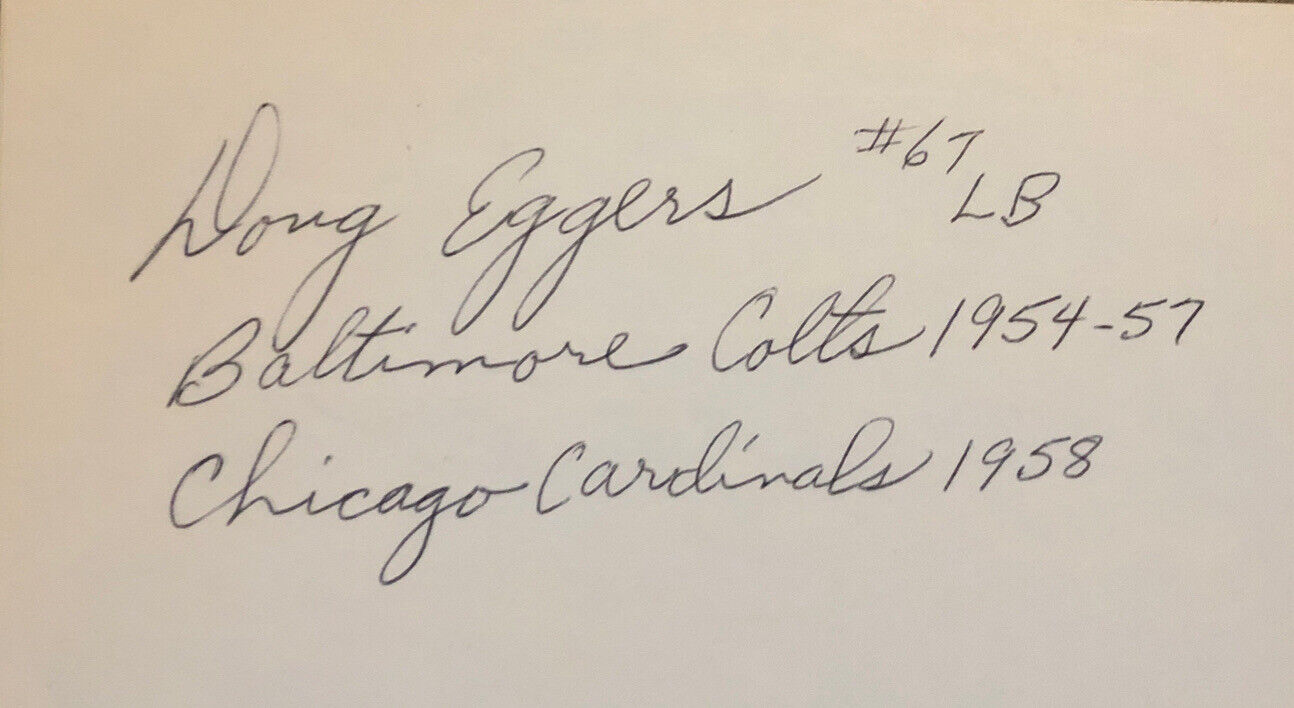 Doug Eggers #67
LB
Baltimore Colts 1954-57
Chicago Cardinals 1958